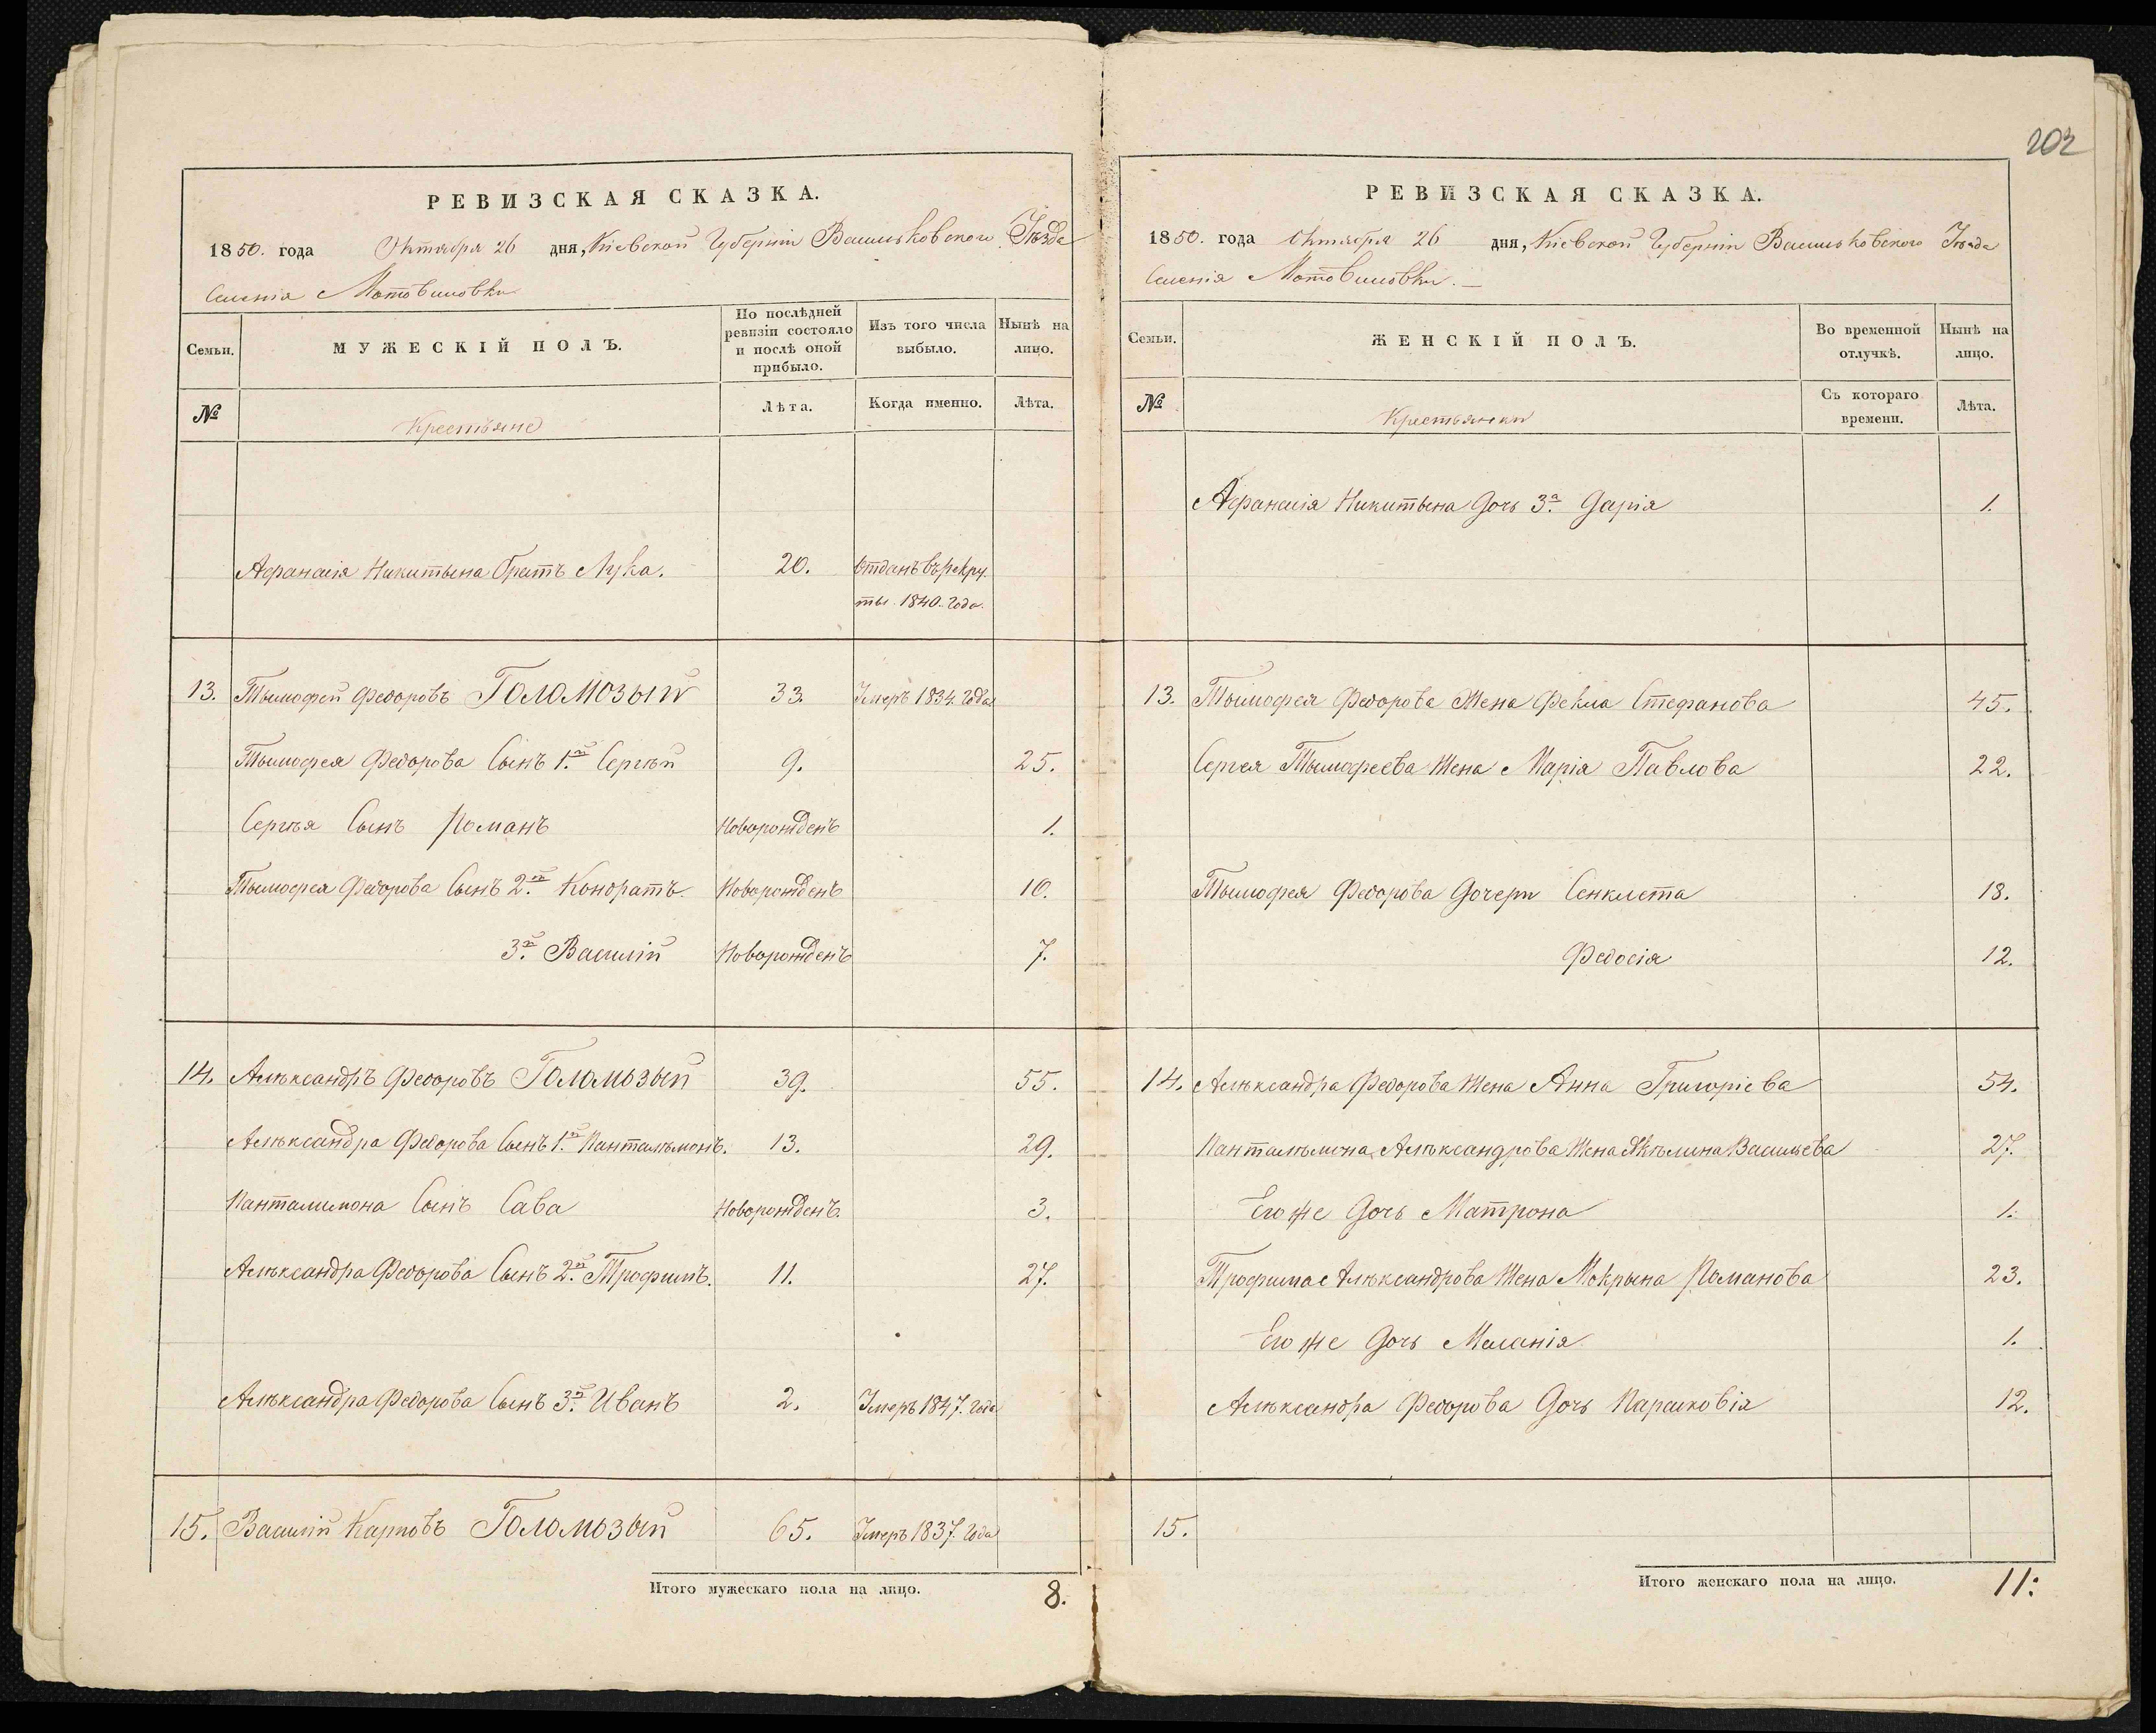 202
РЕВИЗСКАЯ СКАЗКА.
1850. года Октября 26 дня, Кіевской Губерніи Васильковского Уѣзда
Селенія Мотовиловки
Семьи.
МУЖЕСКІЙ ПОЛЪ.
По послѣдней ревизіи состояло и послѣ оной прибыло.
Изъ того числа выбыло.
Нынѣ на лицо.
№
Крестьяне
Лѣта.
Когда именно.
Лѣта.
Афанасія Никитына Братъ Лука. 20. Отданъ въ рекру
ты 1840. года.
13. Тымофей Федоровъ Голомозый 33. Умеръ 1834. года
Тымофея Федорова Сынъ 1.й Сергѣй 9. 25.
Сергѣя Сынъ Романъ Новорожденъ 1.
Тымофея Федорова Сынъ 2.й Кондратъ Новорожденъ 10.
3.й Василій Новорожденъ 7.
14. Алѣксандръ Федоровъ Голомозый 39. 55.
Алѣксандра Федорова Сынъ 1.й Панталѣмонъ. 13. 29.
Панталимона Сынъ Сава Новорожденъ. 3.
Алѣксандра Федорова Сынъ 2.й Трофимъ. 11. 27.
Алѣксандра Федорова Сынъ 3.й Иванъ 2. Умеръ 1847. года
15. Василій Карповъ Голомозый 65. Умеръ 1837. года
Итого мужескаго пола на лицо. 8.
РЕВИЗСКАЯ СКАЗКА.
1850. года Октября 26 дня, Кіевской Губерніи Васильковского Уѣзда
Селенія Мотовиловки.
Семьи.
ЖЕНСКІЙ ПОЛЪ.
Во временной отлучкѣ.
Нынѣ на лицо.
№
Крестьянки
Съ котораго времени.
Лѣта.
Афанасія Никитына Дочь 3.а Дарія 1.
13. Тымофея Федорова Жена Фекла Стефанова 45.
Сергея Тымофеева Жена Марія Павлова 22.
Тымофея Федорова Дочери Сенклета 18.
Федосія 12.
14. Алѣксандра Федорова Жена Анна Григоріева 54.
Панталѣмона Алѣксандрова Жена Акѣлина Васильева 27.
Его же Дочь Матрона 1.
Трофима Алѣксандрова Жена Мокрына Романова 23.
Его же Дочь Меланія 1.
Алѣксандра Федорова Дочь Парасковія 12.
15.
Итого женскаго пола на лицо. 11: